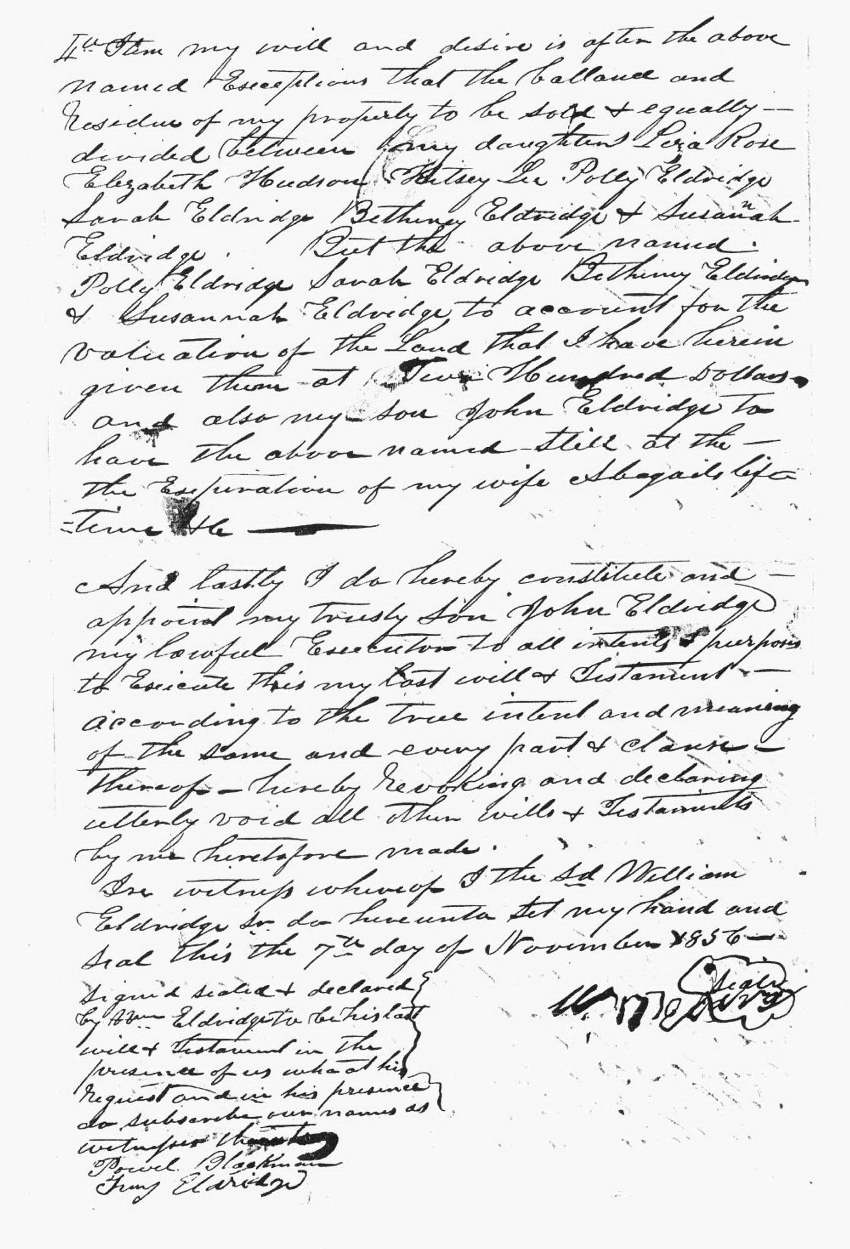 4th Item my will and desire is after the above
named Exceptions that the ballance and
Residue of my property to be sold & equally
divided between my daughters Liza Rose
Elizabeth Hudson Betsey Lee Polly Eldridge
Sarah Eldridge Betheney Eldridge & Susannah
Eldridge. But the above named
Polly Eldridge Sarah Eldridge Betheney Eldridge
& Susannah Eldridge to account for the
valuation of the Land that I have herein
given them at Hundred Dollars
and also my son John Eldridge to
have the above named Still at the
the Expiration of my wife Abagails life
=time &c
And lastly I do hereby constitute and
appoint my trusty Son John Eldridge
my lawful Executor to all intents & purposes
to Execute this my last will & Testament
according to the true intent and meaning
of the same and every part & clause
thereof – hereby Revoking and declaring
utterly void all other wills & Testaments
by me heretofore made.
In witness whereof I the sd William
Eldridge Sr do hereunto Set my hand and
Seal this the 7th day of November 1856
Signed sealed & declared
by Wm Eldridge to be his last
will & Testament in the
presence of us who at his
Request and in his presence
do subscribe our names as
witnesses thereto
Powel Blackman
Eldridge
Wm Eldridg
Seal